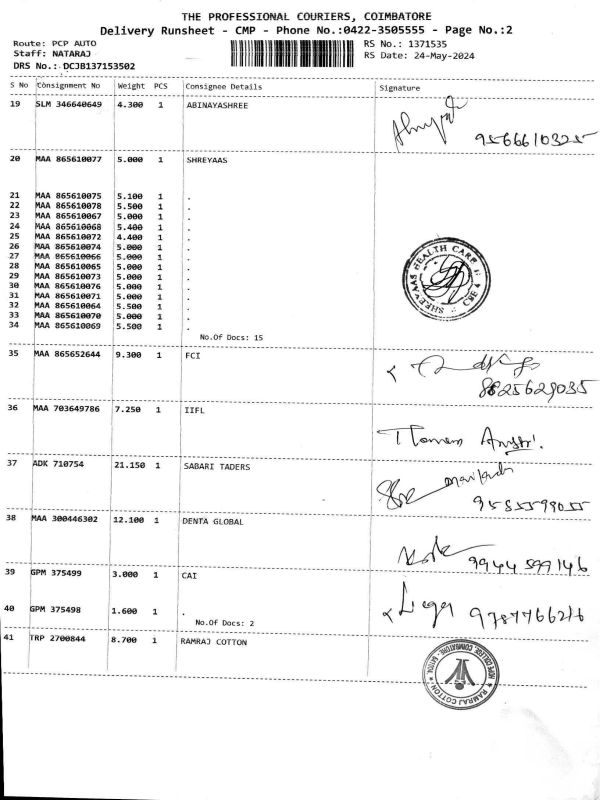 THE PROFESSIONAL COURIERS, COIMBATORE
Delivery Runsheet - CMP - Phone No.:0422-3505555 - Page No.:2
Route: PCP AUTO RS No.: 1371535
Staff: NATARAJ RS Date: 24-May-2024
DRS No.: DCJB137153502
S No Consignment No Weight PCS Consignee Details Signature
19 SLM 346640649 4.300 1 ABINAYASHREE
9566610325
20 MAA 865610077 5.000 1 SHREYAAS
21 MAA 865610075 5.100 1 .
22 MAA 865610078 5.500 1 .
23 MAA 865610067 5.000 1 .
24 MAA 865610068 5.400 1 .
25 MAA 865610072 4.400 1 .
26 MAA 865610074 5.000 1 .
27 MAA 865610066 5.000 1 .
28 MAA 865610065 5.000 1 .
29 MAA 865610073 5.000 1 .
30 MAA 865610076 5.000 1 .
31 MAA 865610071 5.000 1 .
32 MAA 865610064 5.500 1 .
33 MAA 865610070 5.000 1 .
34 MAA 865610069 5.500 1 .
SHREVAAS HEALTH CARE
CBE 4
No.Of Docs: 15
35 MAA 865652644 9.300 1 FCI
8825629035
36 MAA 703649786 7.250 1 IIFL
37 ADK 710754 21.150 1 SABARI TADERS
9585599055
38 MAA 300446302 12.100 1 DENTA GLOBAL
9944599146
39 GPM 375499 3.000 1 CAI
40 GPM 375498 1.600 1 .
9787766216
No.Of Docs: 2
41 TRP 2700844 8.700 1 RAMRAJ COTTON
RAMRAJ COTTON
HOPE COLLEGE, COIMBATORE